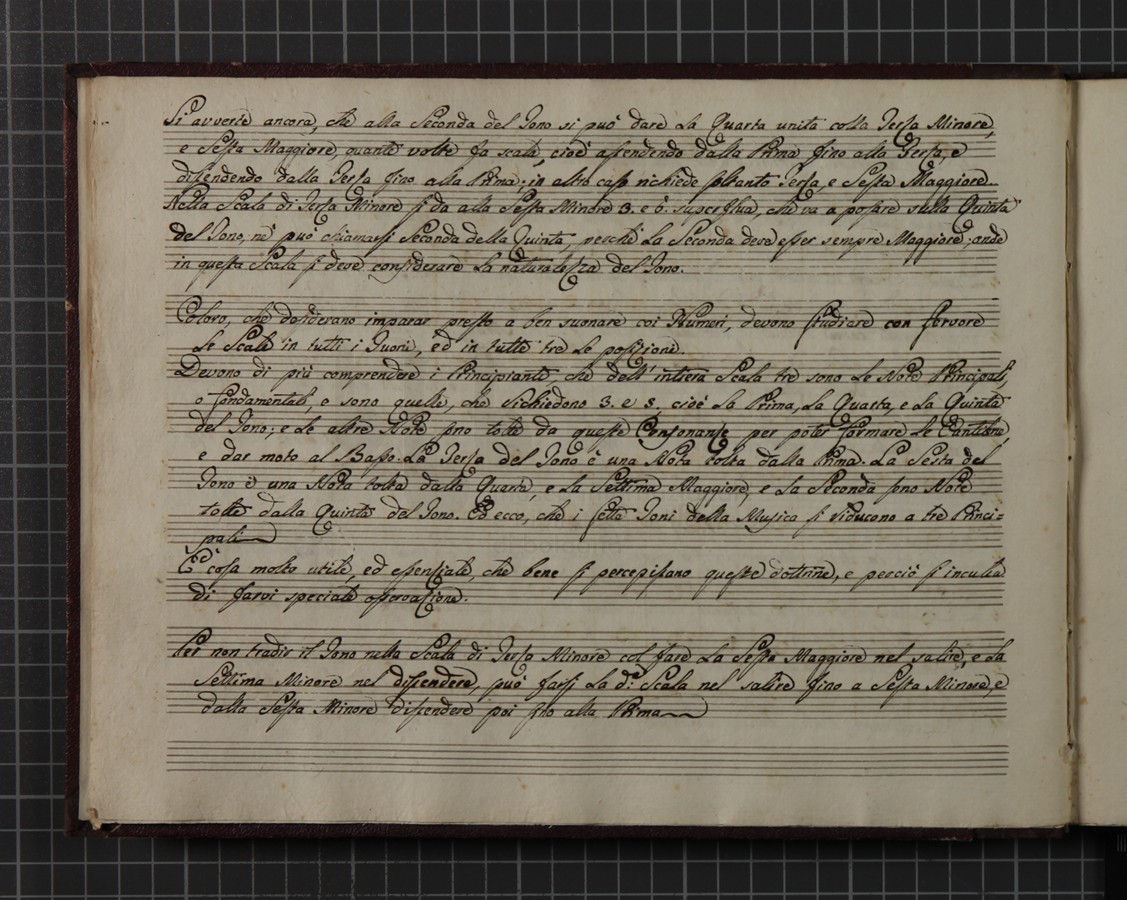 Si avverte ancora, che alla Seconda del Tono si può dare la Quarta unita colla Terza Minore,
e Sesta Maggiore, quante volte fa scala, cioè assendendo dalla Prima fino alla Terza, e
dissendendo dalla Terza fino alla Prima; in altro caso richiede soltanto Terza, e Sesta Maggiore.
Nella Scala di Terza Minore si da alla Sesta Minore 3. e 6. superflua, che va a posare sulla Quinta
del Tono, nè può chiamarsi Seconda della Quinta, perchè la Seconda deve esser sempre Maggiore; onde
in questa Scala si deve considerare la naturalezza del Tono.
Coloro, che desiderano imparar presto a ben suonare coi Numeri, devono studiare con fervore
le Scale in tutti i Tuoni, ed in tutte tre le posizione.
Devono di più comprendere i Principianti che dell' intiera Scala tre sono le Note Principali,
o fondamentali e sono quelle, che richiedono 3. e 8. cioè la Prima, la Quarta, e la Quinta
del Tono; e le altre Note sono tolte da queste Consonanze per poter formare le Cantilene,
e dar moto al Basso. La Terza del Tono è una Nota tolta dalla Prima. La Sesta del
Tono è una Nota tolta dalla Quarta, e la Settima Maggiore, e la Seconda sono Note
tolte dalla Quinta del Tono. Ed ecco, che i sette Toni della Musica si riducono a tre Princi=
pali
E' cosa molto utile, ed essenziale, che bene si percepissano queste dottrine, e perciò si inculca
di farvi speciale osservazione.
Per non tradir il Tono nella Scala di Terza Minore col fare la Sesta Maggiore nel salire, e la
Settima Minore nel dissendere, può farsi la d.ª Scala nel salire fino a Sesta Minore, e
dalla Sesta Minore dissendere poi fino alla Prima